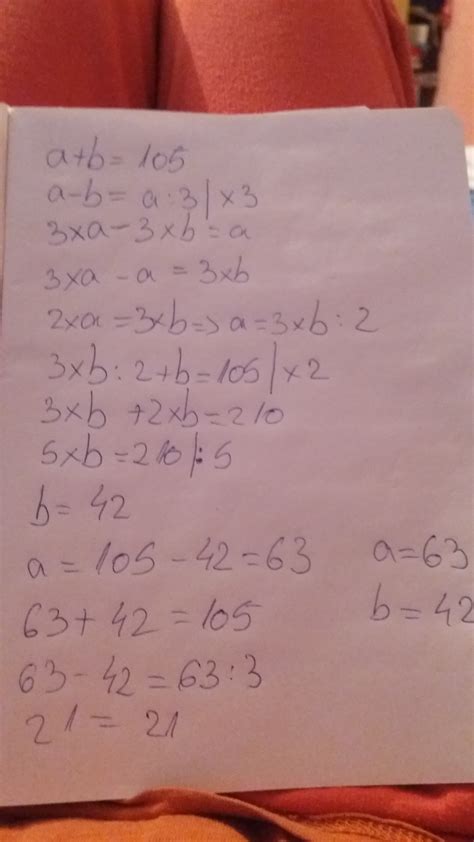 a+b= 105
a-b= a:3|×3
3×a-3×b=a
3×a -a = 3×b
2×a=3×b=>a=3×b:2
3×b:2+b=105|×2
3×b +2×b=210
5×b=210|:5
b= 42
a= 105-42=63 a=63
63+42=105 b=42
63-42=63:3
21= 21